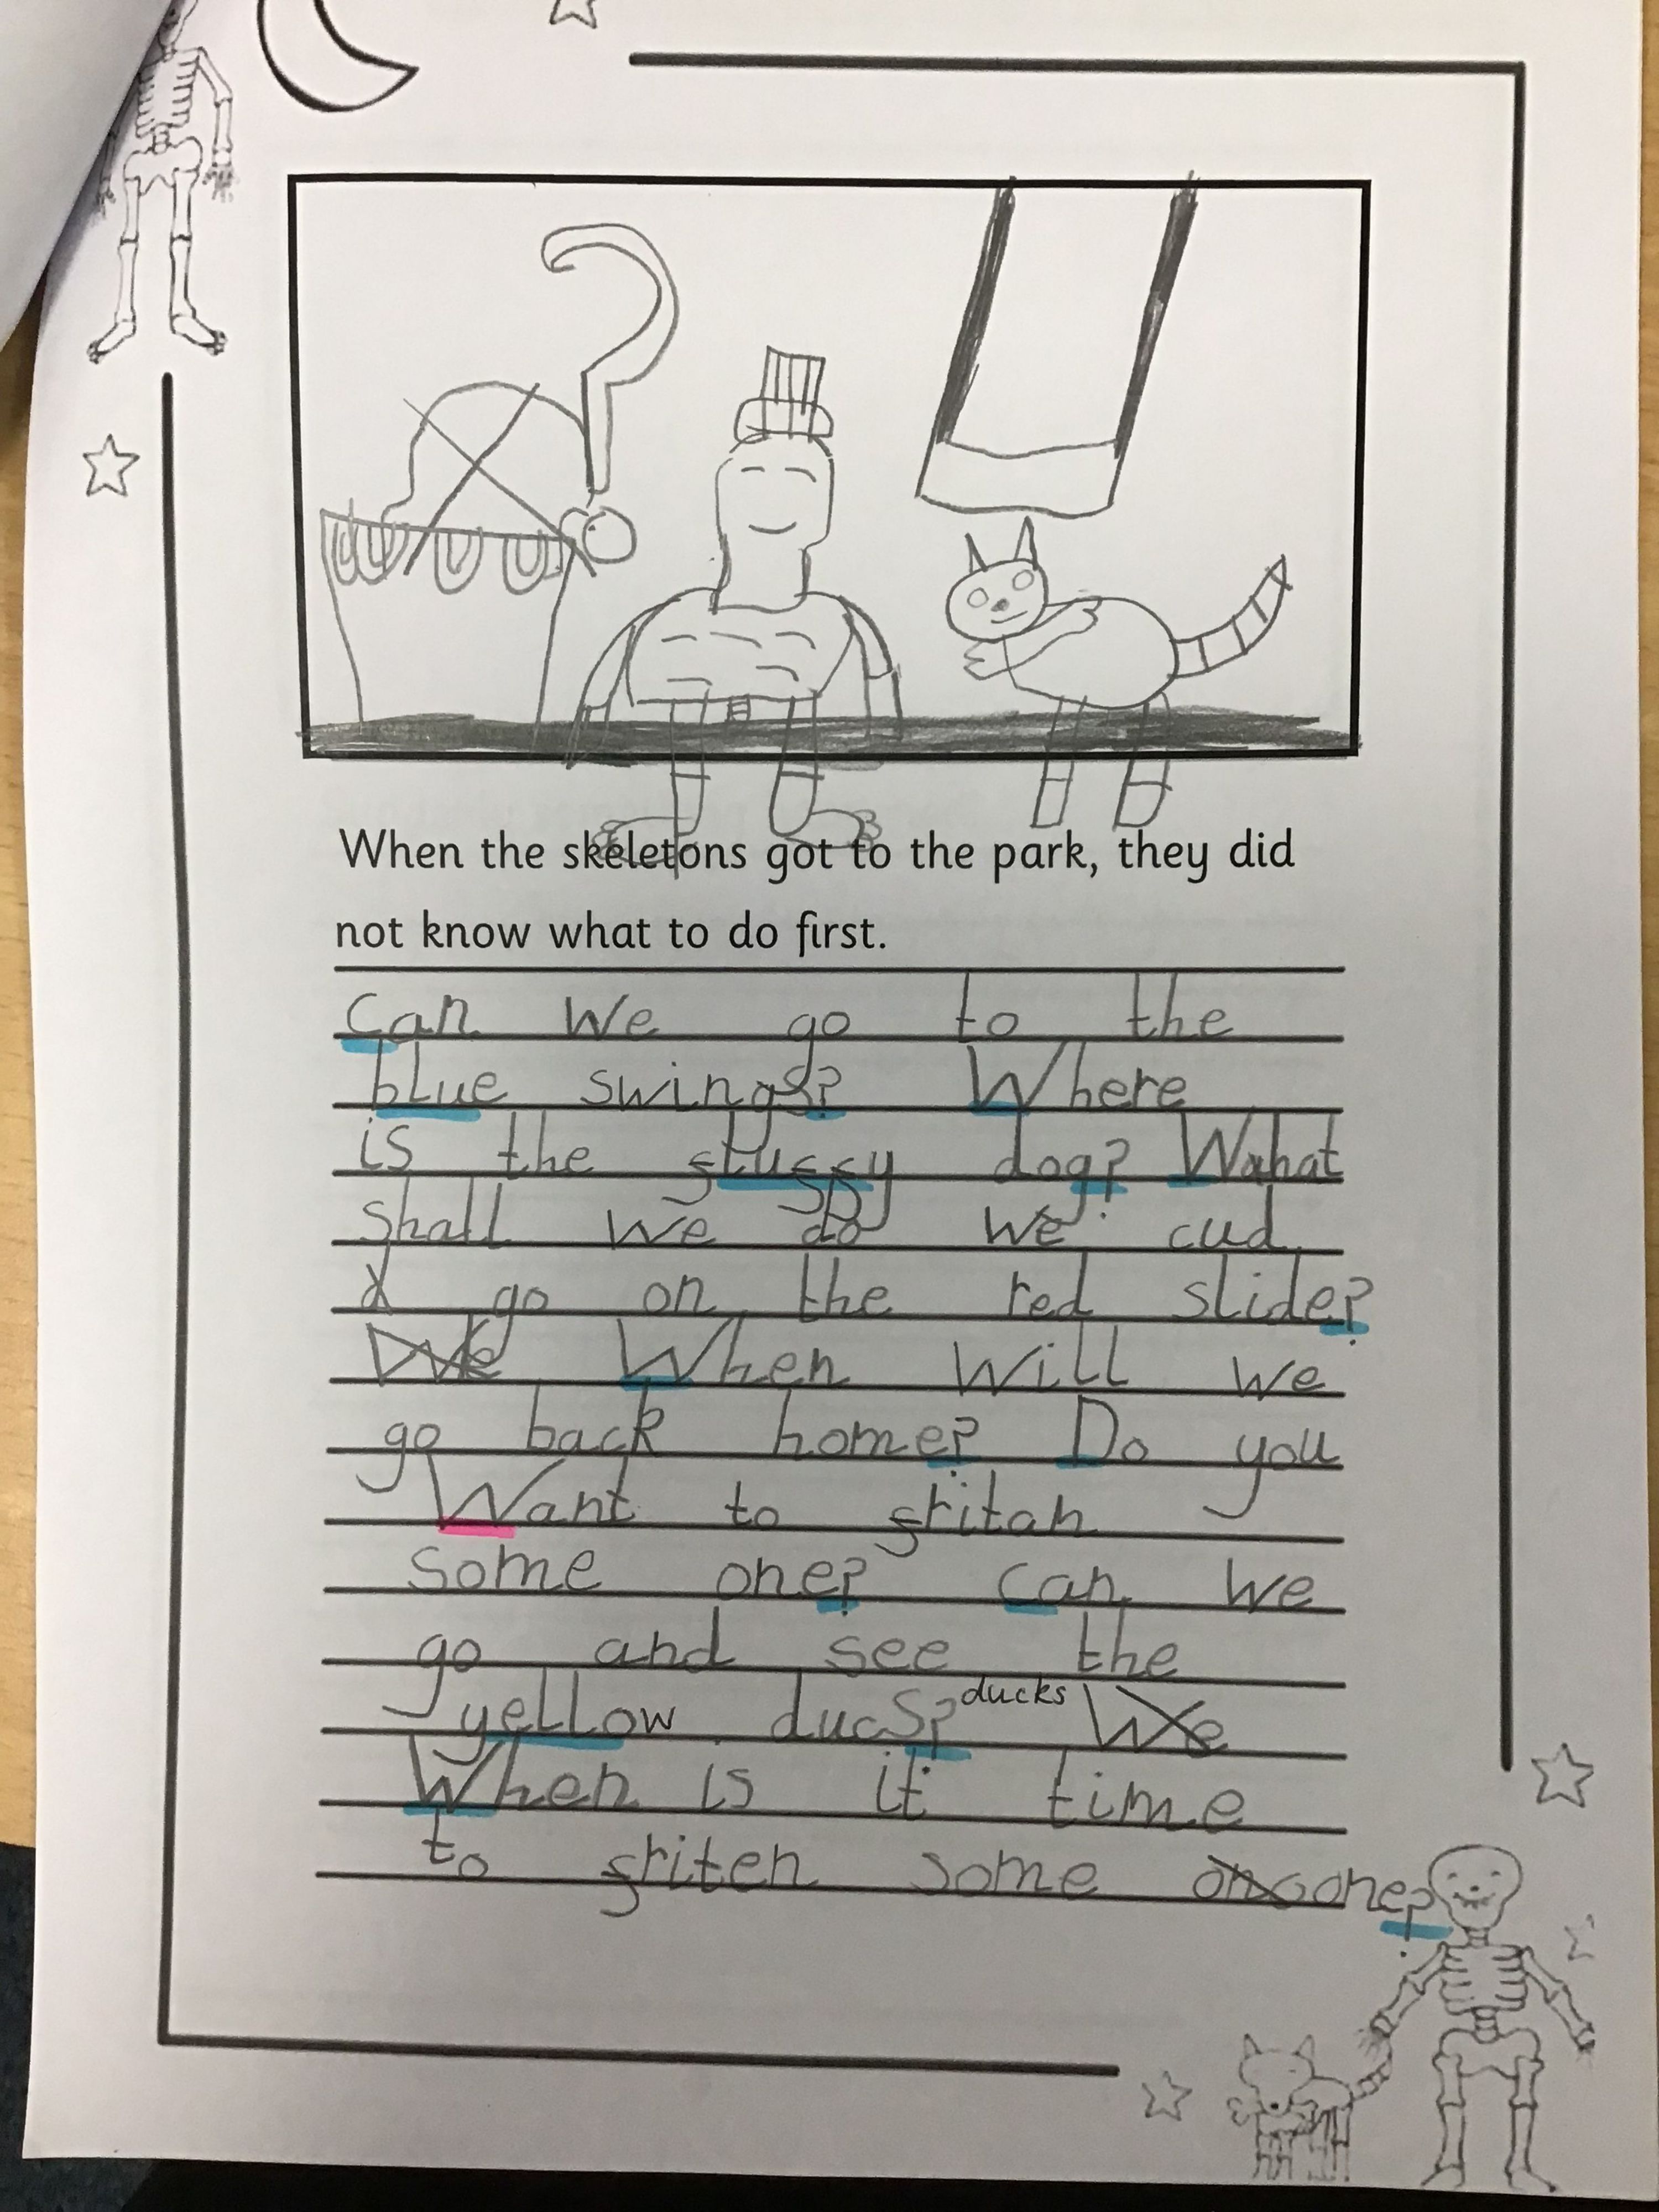 When the skeletons got to the park, they did
not know what to do first.
Can we go to the
blue swings? Where
is the fluffy dog? What
shall we do we cud
go on the red slide?
We When will we
go back home? Do you
Want to fritan
some one? can we
go and see the
yellow ducs? ducks We
When is it time
to friten some one?